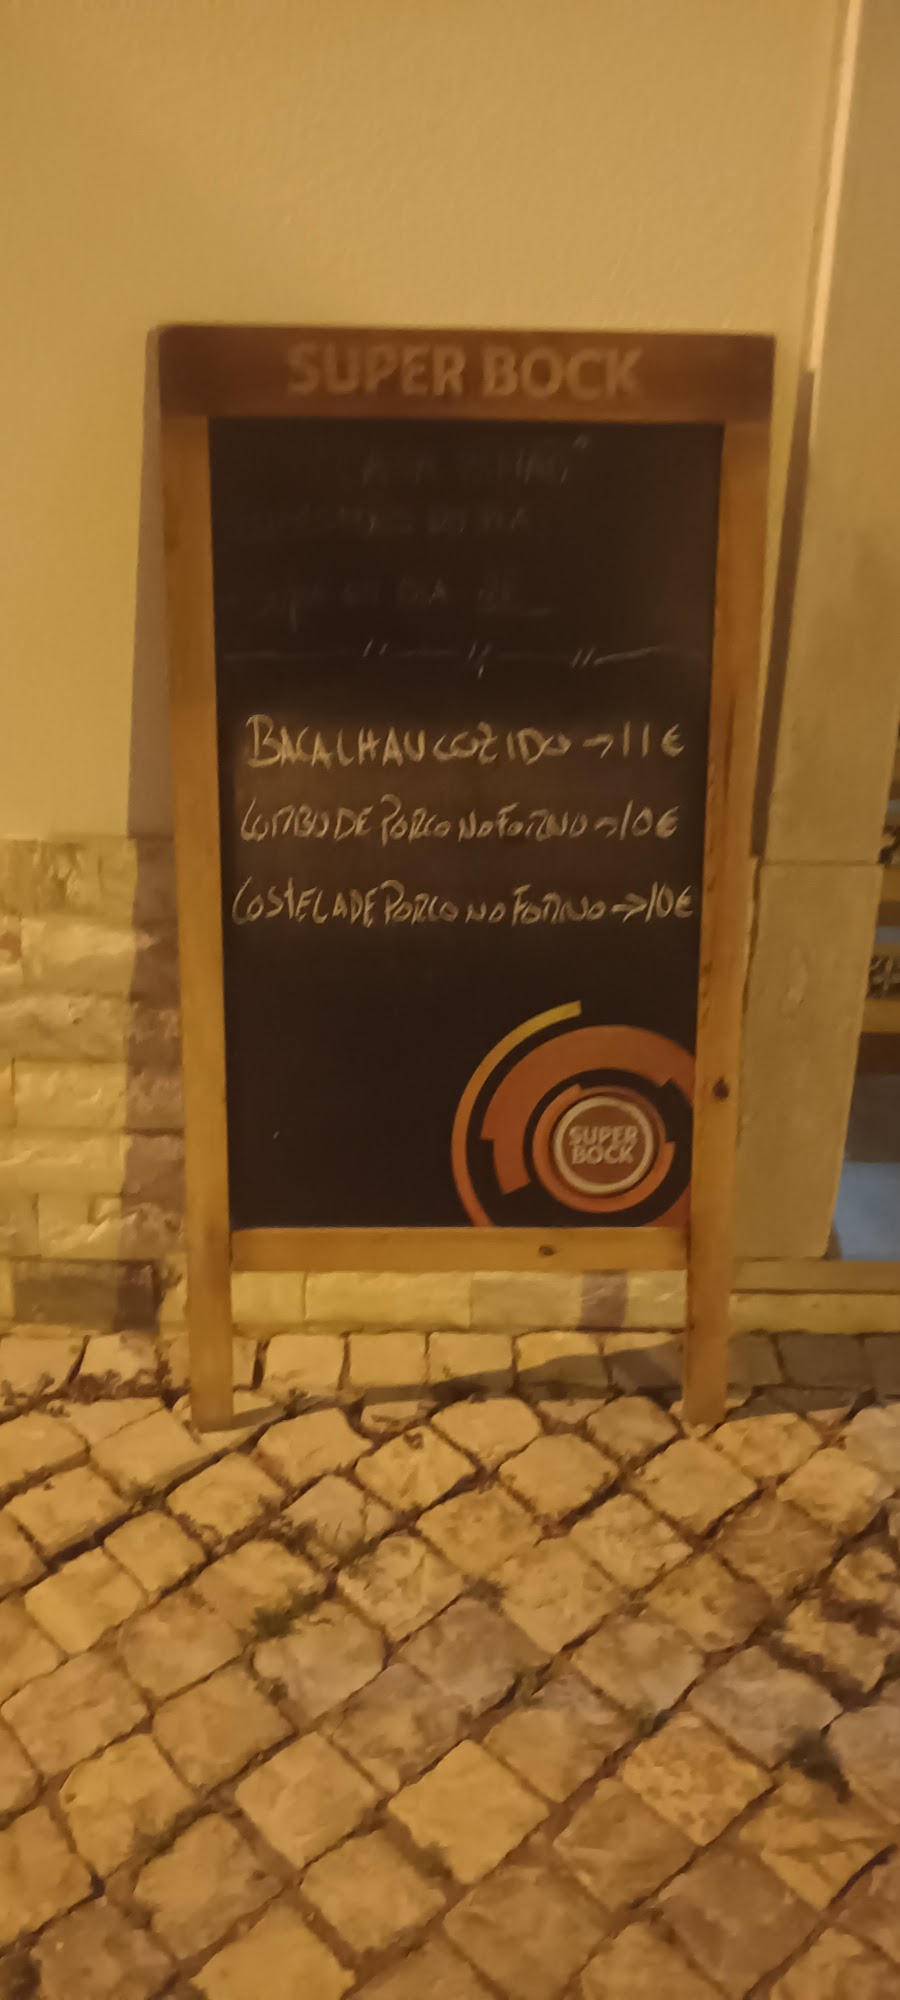 SUPER BOCK
BACALHAU COZIDO → 11€
LOMBO DE PORCO NO FORNO → 10€
COSTELA DE PORCO NO FORNO → 10€
SUPER
BOCK